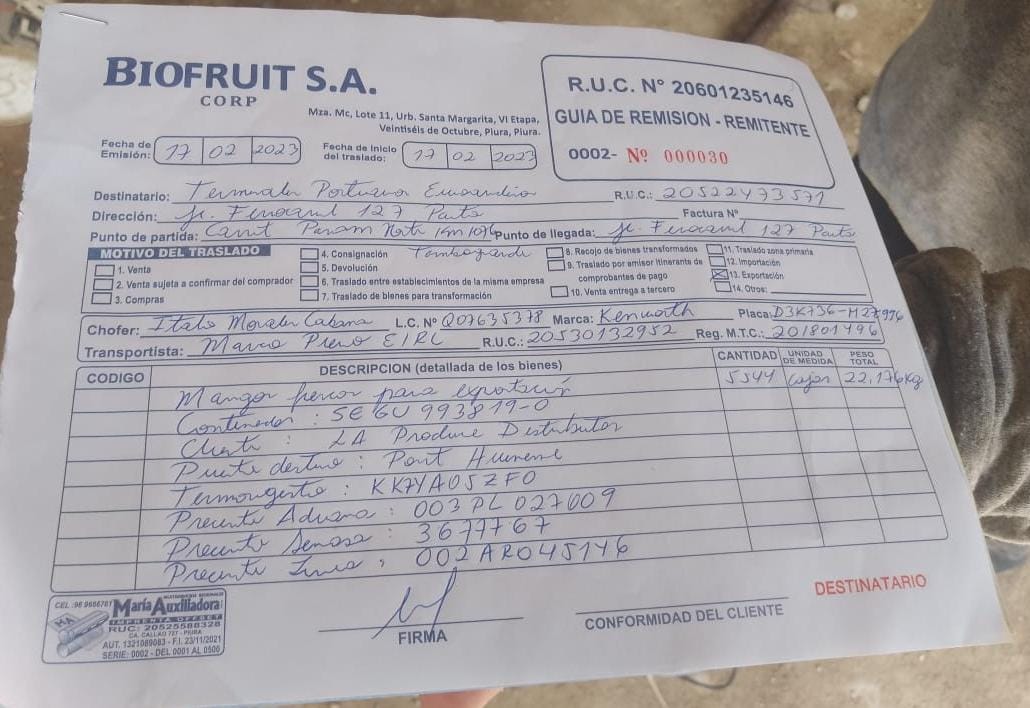 BIOFRUIT S.A.
CORP
Mza. Mc, Lote 11, Urb. Santa Margarita, VI Etapa,
Veintiséis de Octubre, Piura, Piura.
R.U.C. N° 20601235146
GUIA DE REMISION - REMITENTE
0002- Nº 000030
Fecha de Emisión: 17 02 2023 Fecha de Inicio del traslado: 17 02 2023
Destinatario: R.U.C.: 20522473571
Dirección: Jr. Ferrocarril 127 Paita Factura Nº
Punto de partida: Punto de llegada: Jr. Ferrocarril 127 Paita
MOTIVO DEL TRASLADO
1. Venta
2. Venta sujeta a confirmar del comprador
3. Compras
4. Consignación
5. Devolución
6. Traslado entre establecimientos de la misma empresa
7. Traslado de bienes para transformación
8. Recojo de bienes transformados
9. Traslado por emisor itinerante de
comprobantes de pago
10. Venta entrega a tercero
11. Traslado zona primaria
12. Importación
13. Exportación
14. Otros:
Chofer: Italo Morales L.C. Nº Q07635378 Marca: Kenworth Placa:
Transportista: EIRL R.U.C.: 20530132952 Reg. M.T.C.: 201801496
CODIGO DESCRIPCION (detallada de los bienes) CANTIDAD UNIDAD DE MEDIDA PESO TOTAL
Mangos frescos para exportación 5544 cajas 22,176kg
Contenedor : SEGU 993819-0
Cliente : LA Produce Distributor
Puerto destino : Port Hueneme
Termoregistro : KK7YA05ZF0
Precinto Aduana : 003PL027009
Precinto Senasa : 3677767
Precinto Linea : 002AR045146
CEL.:96 9666761
María Auxiliadora
IMPRENTA OFFSET
RUC: 20525588328
CA. CALLAO 727 - PIURA
AUT. 1321089083 - F.I. 23/11/2021
SERIE: 0002 - DEL 0001 AL 0500
FIRMA
CONFORMIDAD DEL CLIENTE
DESTINATARIO